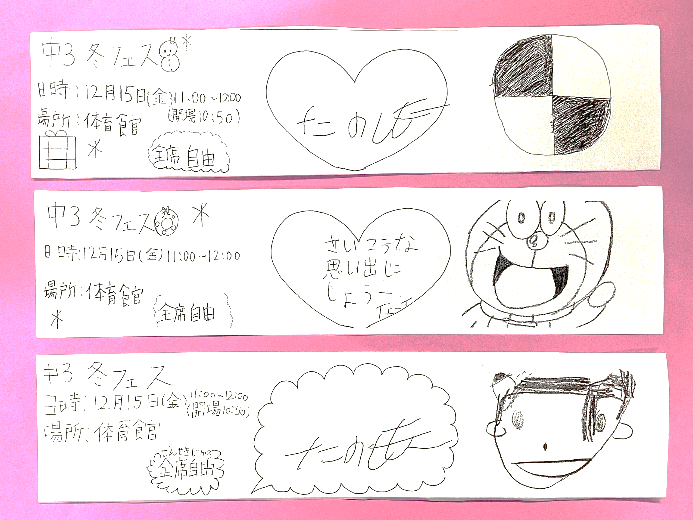 中3 冬フェス
日時:12月15日(金)11:00~12:00
(開場10:50)
場所:体育館
全席自由
たのしもー
中3 冬フェス
日時:12月15日(金)11:00~12:00
場所:体育館
全席自由
さいこうな
思い出に
しようー
中3 冬フェス
日時:12月15日(金)11:00~12:00
(開場10:50)
場所:体育館
ぜんせきじゆう
全席自由
たのしもー